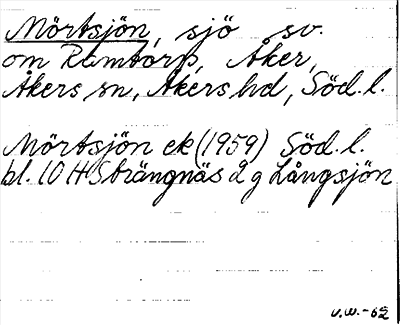 Mörtsjön, sjö sv.
om Ramtorp, Åker,
Åkers sn, Åkers hd, Söd.l.
Mörtsjön ek (1959) Söd.l.
bl. 10 H Strängnäs 2 g Långsjön
V.W.-62